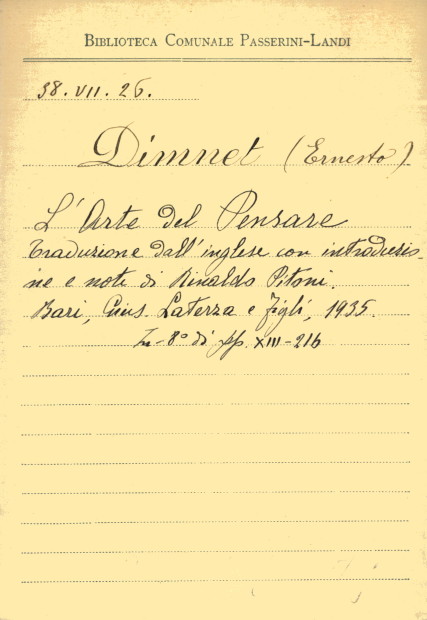 BIBLIOTECA COMUNALE PASSERINI-LANDI
38. VII. 26.
Dimnet (Ernesto)
L'Arte del Pensare
Traduzione dall'inglese con introduzio-
ne e note di Rinaldo Pitoni.
Bari, Gius. Laterza e Figli, 1935.
In-8° di pp. XIII-216